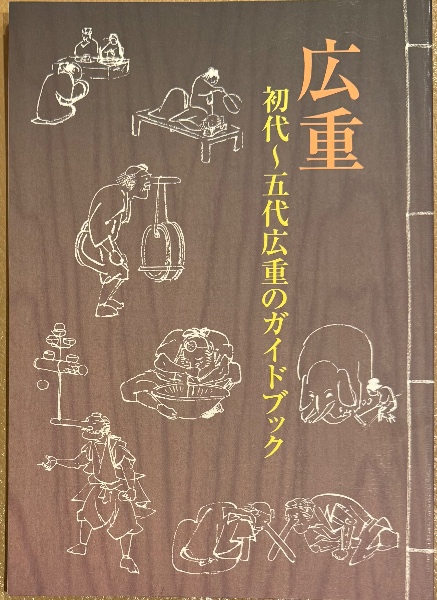 広重
初代～五代広重のガイドブック